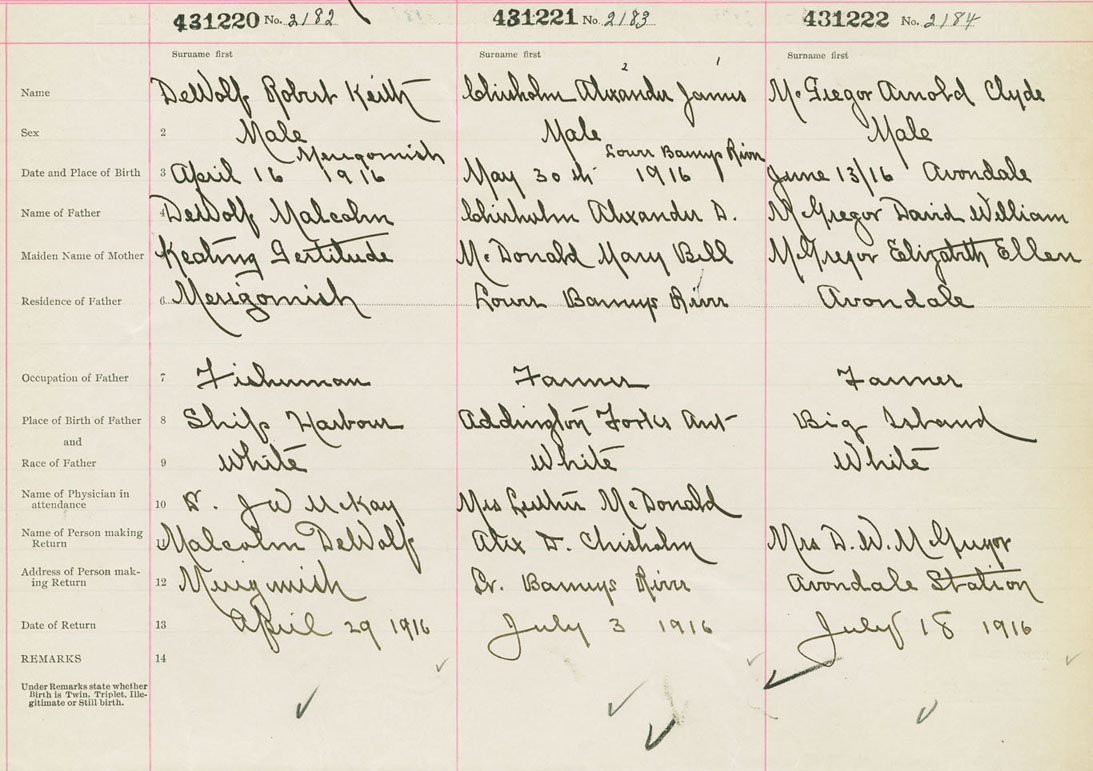 431220 No. 2182 431221 No. 2183 431222 No. 2184
Surname first Surname first Surname first
2 1
Name DeWolf Robert Keith Chisholm Alexander James McGregor Arnold Clyde
Sex 2 Male Male Male
Merigomish Lower Barneys River
Date and Place of Birth 3 April 16 1916 May 30th 1916 June 13/16 Avondale
Name of Father 4 DeWolf Malcolm Chisholm Alexander D. McGregor David William
Maiden Name of Mother Keating Gertitude McDonald Mary Bell McGregor Elizabeth Ellen
Residence of Father 6 Merigomish Lower Barneys River Avondale
Occupation of Father 7 Fisherman Farmer Farmer
Place of Birth of Father 8 Ship Harbour Addington Forks Ant Big Island
and
Race of Father 9 White White White
Name of Physician in
attendance 10 D. J W McKay Mrs Luther McDonald
Name of Person making
Return 11 Malcolm DeWolf Alex D. Chisholm Mrs D. W. McGregor
Address of Person mak-
ing Return 12 Merigomish Lr. Barneys River Avondale Station
Date of Return 13 April 29 1916 July 3 1916 July 18 1916
REMARKS 14
Under Remarks state whether
Birth is Twin, Triplet, Ille-
gitimate or Still birth.